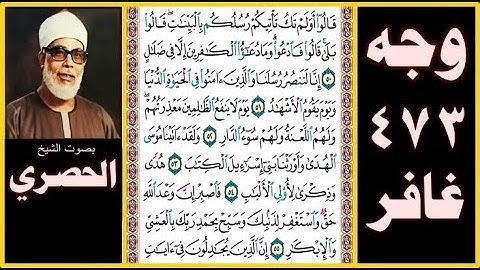 وجه
٤٧٣
غافر
بصوت الشيخ
الحصري
قَالُوٓا۟ أَوَلَمْ تَكُ تَأْتِيكُمْ رُسُلُكُم بِٱلْبَيِّنَـٰتِ ۖ قَالُوا۟
بَلَىٰ ۚ قَالُوا۟ فَٱدْعُوا۟ ۗ وَمَا دُعَـٰٓؤُا۟ ٱلْكَـٰفِرِينَ إِلَّا فِى ضَلَـٰلٍ
٥٠ إِنَّا لَنَنصُرُ رُسُلَنَا وَٱلَّذِينَ ءَامَنُوا۟ فِى ٱلْحَيَوٰةِ ٱلدُّنْيَا
وَيَوْمَ يَقُومُ ٱلْأَشْهَـٰدُ ٥١ يَوْمَ لَا يَنفَعُ ٱلظَّـٰلِمِينَ مَعْذِرَتُهُمْ ۖ
وَلَهُمُ ٱللَّعْنَةُ وَلَهُمْ سُوٓءُ ٱلدَّارِ ٥٢ وَلَقَدْ ءَاتَيْنَا مُوسَى
ٱلْهُدَىٰ وَأَوْرَثْنَا بَنِىٓ إِسْرَٰٓءِيلَ ٱلْكِتَـٰبَ ٥٣ هُدًى
وَذِكْرَىٰ لِأُو۟لِى ٱلْأَلْبَـٰبِ ٥٤ فَٱصْبِرْ إِنَّ وَعْدَ ٱللَّهِ
حَقٌّ وَٱسْتَغْفِرْ لِذَنۢبِكَ وَسَبِّحْ بِحَمْدِ رَبِّكَ بِٱلْعَشِىِّ
وَٱلْإِبْكَـٰرِ ٥٥ إِنَّ ٱلَّذِينَ يُجَـٰدِلُونَ فِىٓ ءَايَـٰتِ